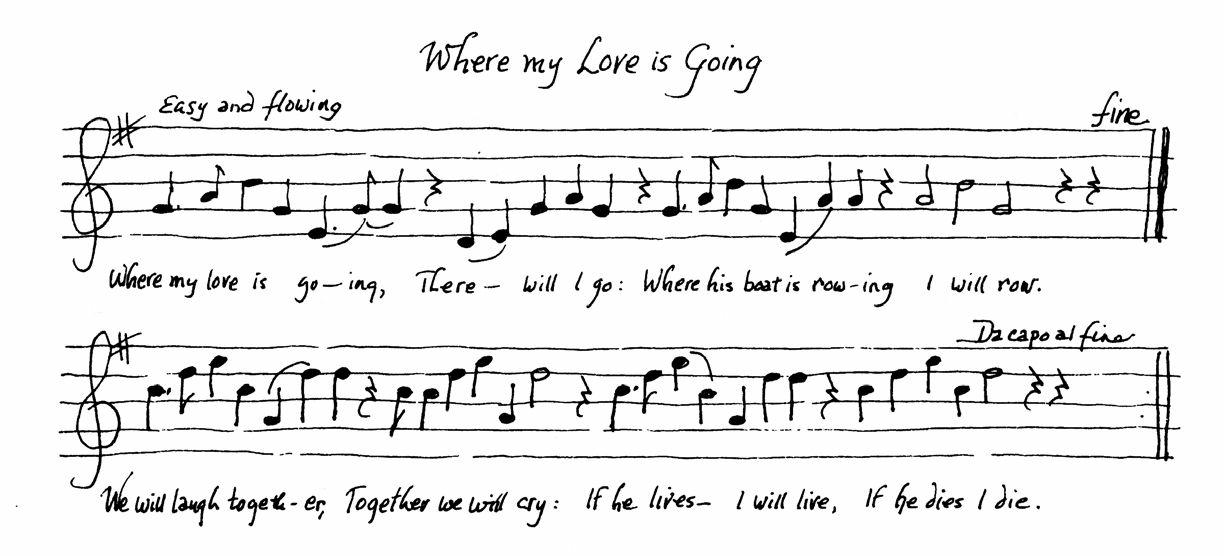 Where my Love is Going
Easy and flowing
fine
Where my love is go-ing, There - will I go: Where his boat is row-ing I will row.
Da capo al fine
We will laugh togeth-er, Together we will cry: If he lives- I will live, If he dies I die.